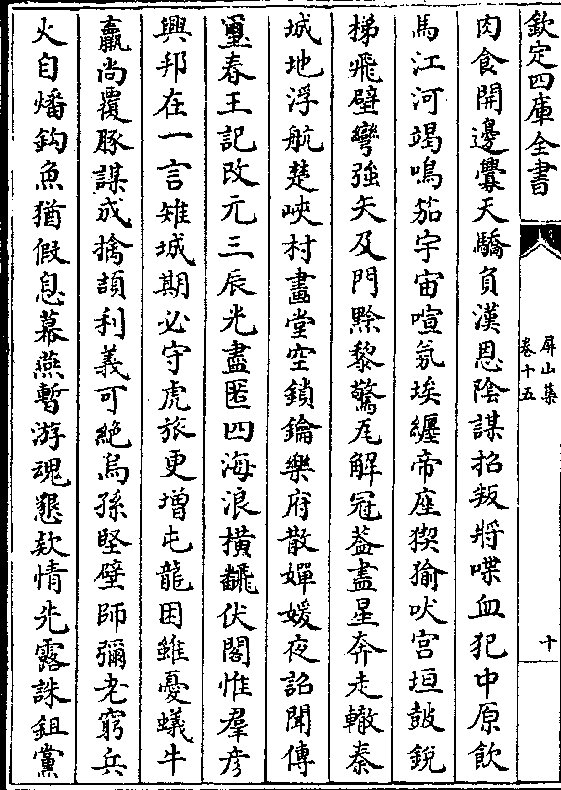 欽定四庫全書
屏山藁
卷十五
十
肉食開邊釁天驕負漢恩陰謀招叛將喋血犯中原飲
馬江河竭鳴笳宇宙喧氛埃纏帝座猰㺄吠宮垣皷銳
梯飛壁彎強矢及門黔黎驚瓦解冠葢盡星奔走轍秦
城地浮航楚峽村畫堂空鎖鑰樂府散嬋媛夜詔聞傳
璽春王記改元三辰光盡匿四海浪橫飜伏閣惟羣彦
興邦在一言雉城期必守虎旅更增屯龍困雖憂蟻牛
羸尚覆豚謀成擒頡利義可絶烏孫堅壁師彌老窮兵
火自燔鈎魚猶假息幕燕暫游魂懇欵情先露誅鉏黨